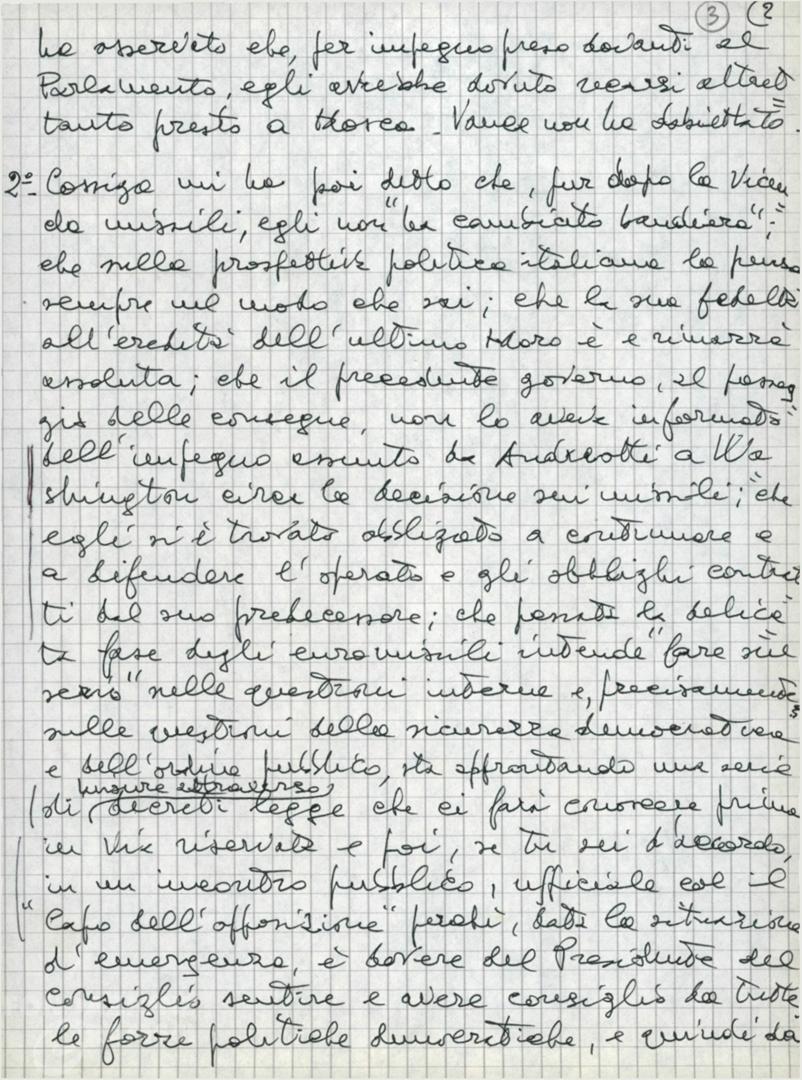 3 (2
ha osservato che, per impegno preso davanti al
Parlamento, egli avrebbe dovuto recarsi altret
tanto presto a Mosca. Vance non ha obiettato.
2º- Cossiga mi ha poi detto che, pur dopo la vicen
da missili, egli non "ha cambiato bandiera";
che nella prospettiva politica italiana la pensa
sempre nel modo che sai; che la sua fedeltà
all'eredità dell'ultimo Moro è e rimarrà
assoluta; che il precedente governo, al passag
gio delle consegne, non lo aveva informato
dell'impegno assunto da Andreotti a Wa
shington circa la decisione sui missili; che
egli si è trovato obbligato a continuare e
a difendere l'operato e gli obblighi contrat
ti dal suo predecessore; che passata la delica
ta fase degli euromissili intende "fare sul
serio" nelle questioni interne e, precisamente,
sulle questioni della sicurezza democratica
e dell'ordine pubblico, sta approntando una serie
misure attraverso
di decreti legge che ci farà conoscere prima
in via riservata e poi, se tu sei d'accordo,
in un incontro pubblico, ufficiale col il
"Capo dell'opposizione" perché, data la situazione
d'emergenza, è dovere del Presidente del
Consiglio sentire e avere consiglio da tutte
le forze politiche democratiche, e quindi da